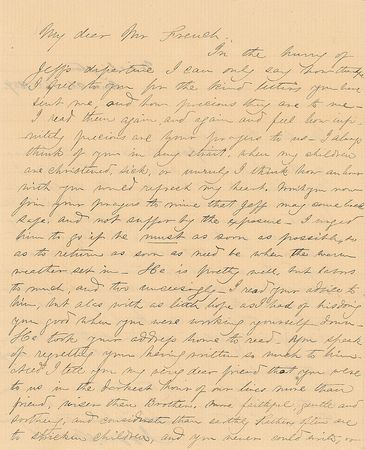 My dear Mr French.
In the hurry of
Jeff's departure I can only say how
I feel to you for the kind letters you have
sent me, and how precious they are to me—
I read them again and again and feel how
precious are your prayers to us— I always
think of you in any strait, when my children
are christened, sick, or unruly I think how an hour
with you would refresh my heart. now
join your prayers to mine that Jeff may come back
safe and not suffer by the exposure— I urged
him to go if he must as soon as possible, so
as to return as soon as need be when the warm
weather set in— He is pretty well but labors
to much, and too unceasingly. I read your advice to
him, but alas with as little hope as I had of his doing
you good when you were working yourself down—
He took your address home to read. you speak
of regretting your having written so much to him—
I tell you my very dear friend that you were
to us in the darkest hour of our lives more than
friend, wiser than Brothers, more faithful, gentle and
soothing, and considerate than earthly fathers often are
to stricken children, and you never could write, or